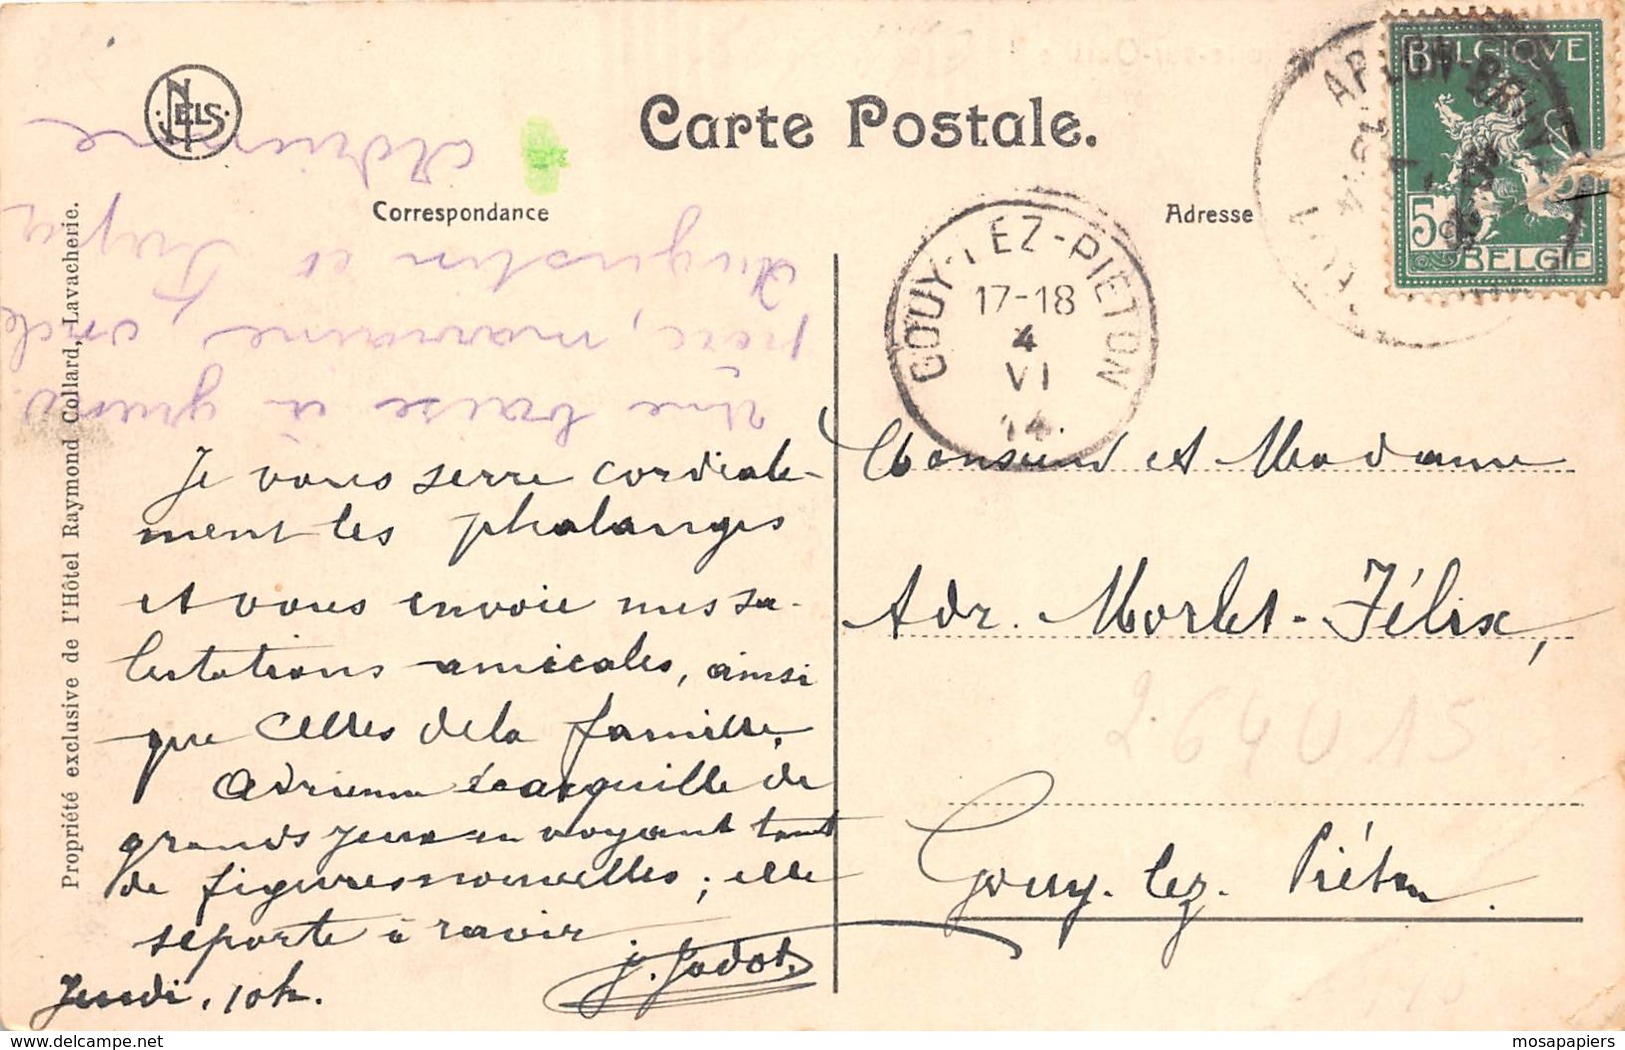 NELS
Carte Postale.
Correspondance
Adresse
BELGIQUE
5
BELGIË
GOUY-LEZ-PIETON
17-18
4
VI
14
Propriété exclusive de l'Hôtel Raymond Collard, Lavacherie.
Une baise à grand
père, marraine, oncle
Augustin et Fufu
Adrienne
Je vous serre cordiale-
ment les phalanges
et vous envoie mes sa-
lutations amicales, ainsi
que celles de la famille.
Adrienne écarquille de
grands yeux en voyant tant
de figures nouvelles; elle
se porte à ravir
Jeudi, 10h.
J. Jadot.
Monsieur et Madame
Adr. Morlet-Félix,
Gouy-lez-Piéton.
264015
mosapapiers